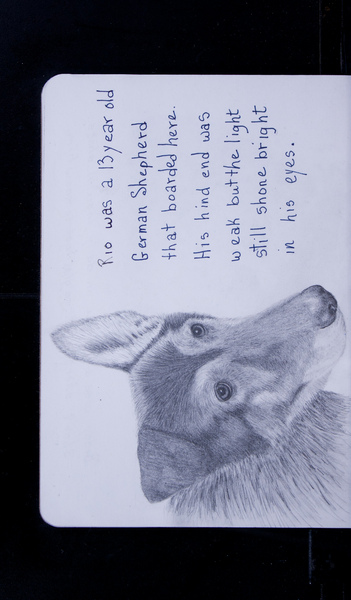 Rio was a 13 year old
German Shepherd
that boarded here.
His hind end was
weak but the light
still shone bright
in his eyes.